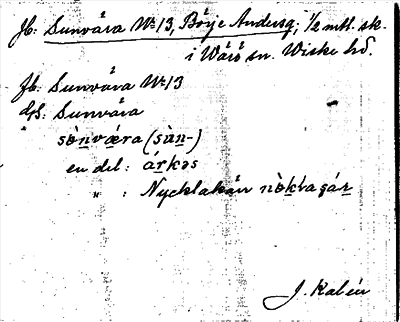 Jb: Sunvåra No 13, Börje Andersg; 1/2 mtl. sk.
i Wärö sn. Wiske hd.
Jb: Sunvåra No 13
GS: Sunvåra
" sònvǽra (sùn-)
en del: árkəs
" : Nycklakån
J. Kalén